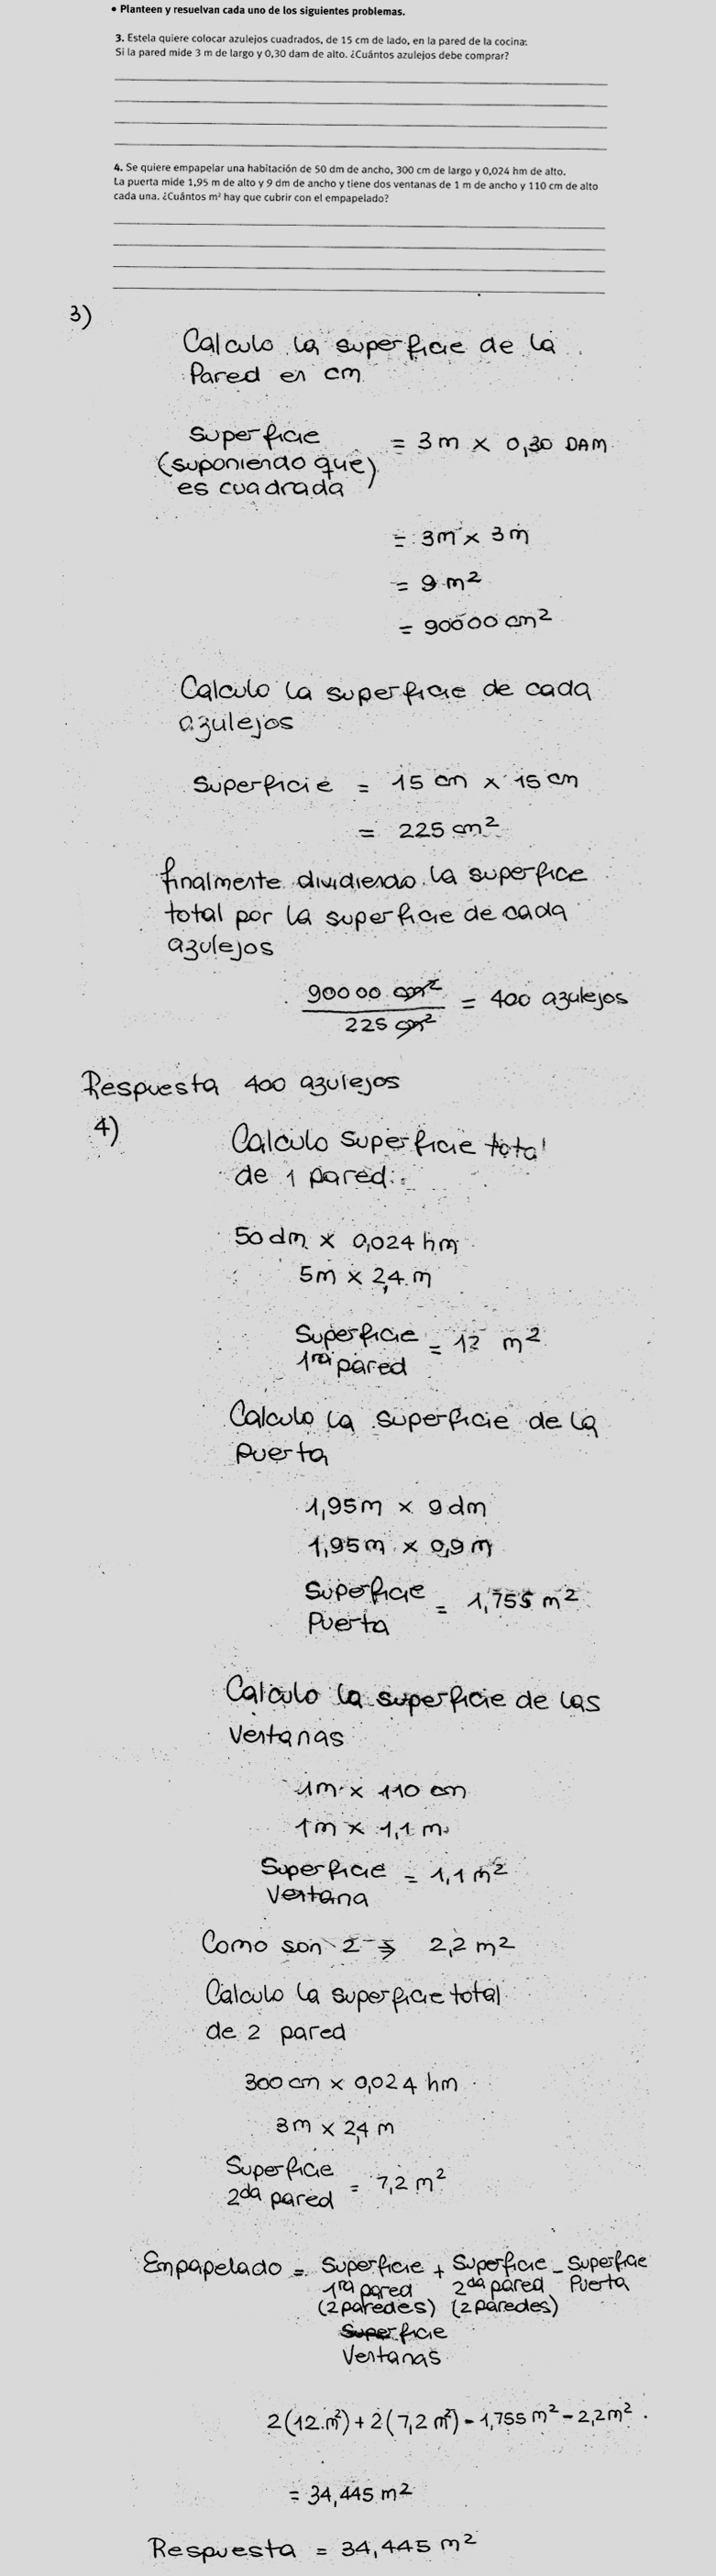 • Planteen y resuelvan cada uno de los siguientes problemas.
3. Estela quiere colocar azulejos cuadrados, de 15 cm de lado, en la pared de la cocina.
Si la pared mide 3 m de largo y 0,30 dam de alto. ¿Cuántos azulejos debe comprar?
4. Se quiere empapelar una habitación de 50 dm de ancho, 300 cm de largo y 0,024 hm de alto.
La puerta mide 1,95 m de alto y 9 dm de ancho y tiene dos ventanas de 1 m de ancho y 110 cm de alto
cada una. ¿Cuántos m² hay que cubrir con el empapelado?
3)
Calculo la superficie de la
Pared en cm
Superficie
(suponiendo que)
es cuadrada
= 3m × 0,30 DAM
= 3m × 3m
= 9 m²
= 90000 cm²
Calculo la superficie de cada
azulejos
Superficie = 15 cm × 15 cm
= 225 cm²
finalmente dividiendo la superfice
total por la superficie de cada
azulejos
90000 cm²
= 400 azulejos
225 cm²
Respuesta 400 azulejos
4)
Calculo superficie total
de 1 pared:
50 dm × 0,024 hm
5m × 2,4 m
Superficie
1ra pared
= 12 m²
Calculo la superficie de la
Puerta
1,95m × 9dm
1,95m × 0,9m
Superficie
Puerta
= 1,755 m²
Calculo la superficie de las
Ventanas
1m × 110 cm
1m × 1,1 m
Superficie
Ventana
= 1,1 m²
Como son 2 → 2,2 m²
Calculo la superficie total
de 2 pared
300 cm × 0,024 hm
3m × 2,4 m
Superficie
2da pared
= 7,2 m²
Empapelado = Superficie + Superficie - Superficie
1ra pared 2da pared Puerta
(2 paredes) (2 paredes)
Superficie
Ventanas
2(12 m²) + 2(7,2 m²) - 1,755 m² - 2,2 m²
= 34,445 m²
Respuesta = 34,445 m²